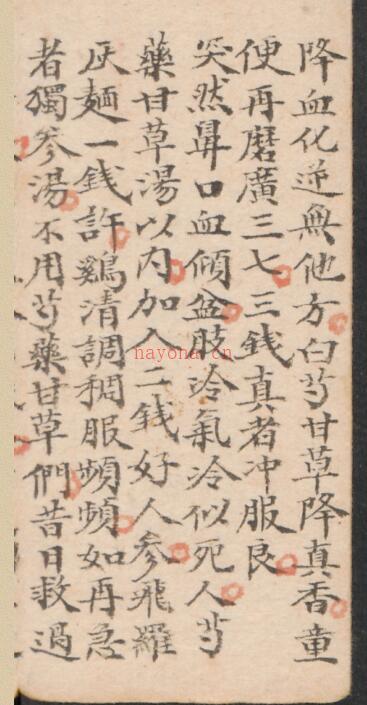 降血化逆無他方白芍甘草降真香童
便再磨廣三七三錢真者冲服良
突然鼻口血傾盆肢冷氣冷似死人芍
藥甘草湯以内加入二錢好人參飛羅
灰麵一錢許鷄清調稠服頻頻如再急
者獨參湯不用芍藥甘草們昔日救過
hayona.cn